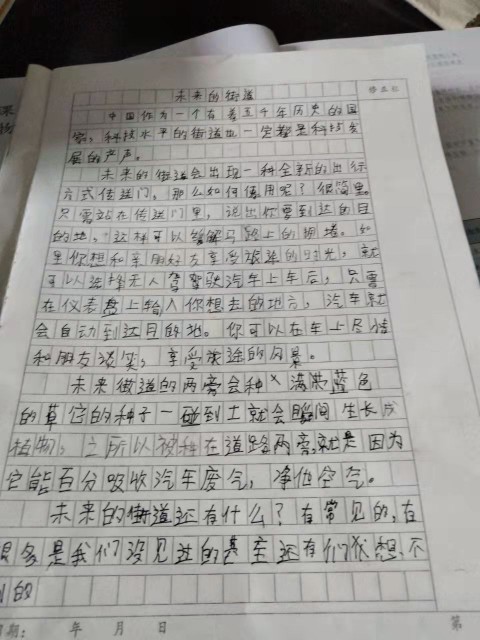 未来的街道
修正栏
中国作为一个有着五千年历史的国
家，科技水平的街道也一定都是科技发
展的产声。
未来的街道会出现一种全新的出行
方式传送门，那么如何使用呢？很简单
只需站在传送门里，说出你要到达的目
的地，这样可以缓解马路上的拥堵。如
果你想和亲朋好友享受旅途的时光，就
可以选择无人驾驶汽车上车后，只要
在仪表盘上输入你想去的地方，汽车就
会自动到达目的地。你可以在车上尽情
和朋友谈笑，享受旅途的风景。
未来街道的两旁会种满蓝色
的草它的种子一碰到土就会瞬间生长成
植物，之所以被种在道路两旁就是因为
它能百分吸收汽车废气，净化空气。
未来的街道还有什么？有常见的，在
很多是我们没见过的甚至还有们犹想不
到的
日期： 年 月 日
第